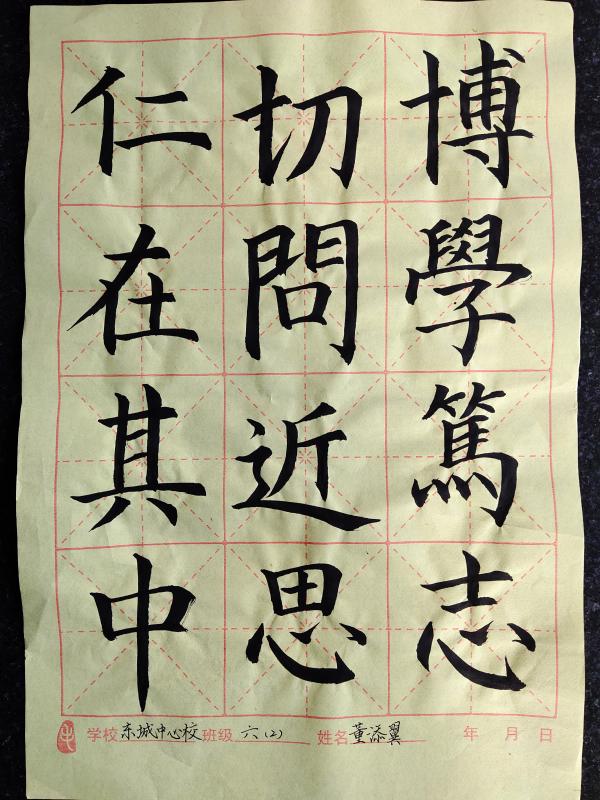 博學篤志
切問近思
仁在其中
学校 东城中心校 班级 六(2) 姓名 董添翼 年 月 日